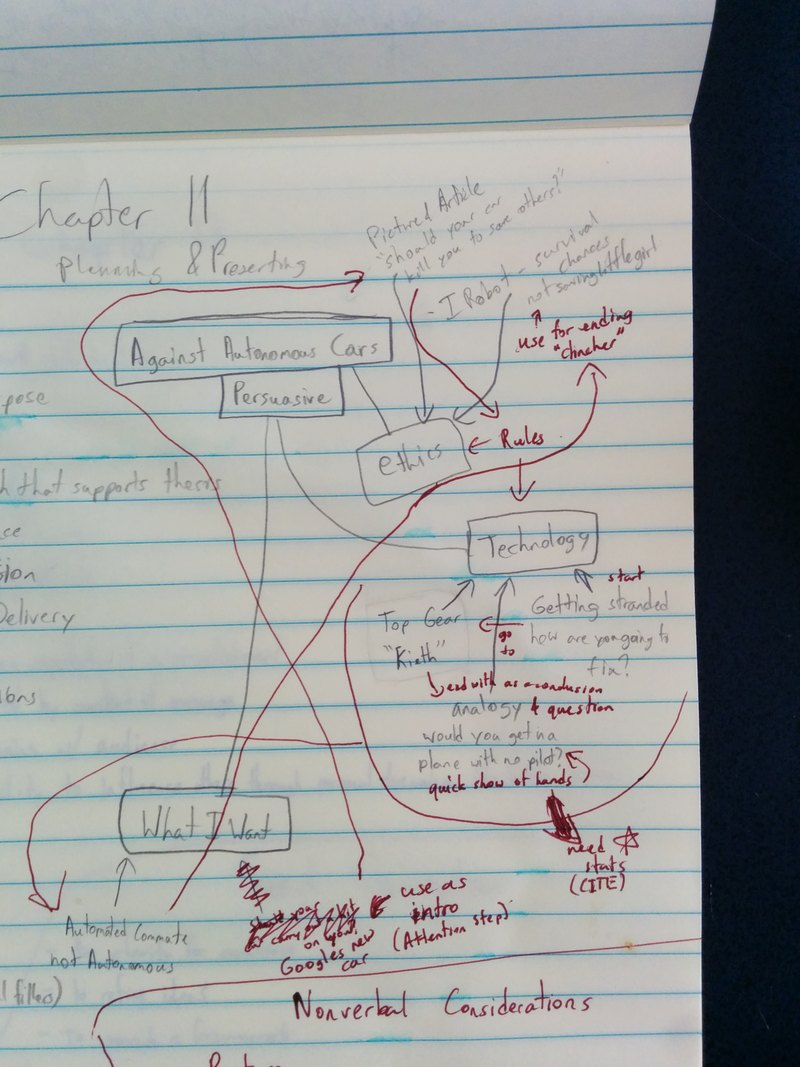 Chapter 11
Planning & Presenting
Pictured Article
"should your car
kill you to save others?"
- I Robot - survival
chances
not saving little girl
use for ending
"clincher"
Against Autonomous Cars
Persuasive
pose
ethics
Rules
h that supports thesis
ce
sion
Delivery
Technology
start
Top Gear
"Kieth"
go
to
Getting stranded
how are you going to
fix?
end with as a conclusion
analogy & question
would you get na
plane with no pilot?
quick show of hands
What I Want
need
stats
(CITE)
Automated Commute
not Autonomous
on your
Googles new
car
use as
intro
(Attention step)
l fillers)
Nonverbal Considerations